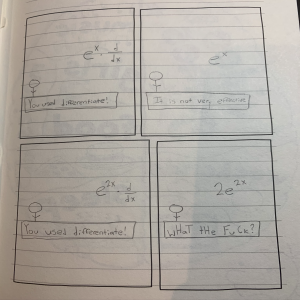 e^x · d/dx
You used differentiate!
e^x
It is not very effective
e^2x · d/dx
You used differentiate!
2e^2x
WHaT tHe FuCk?